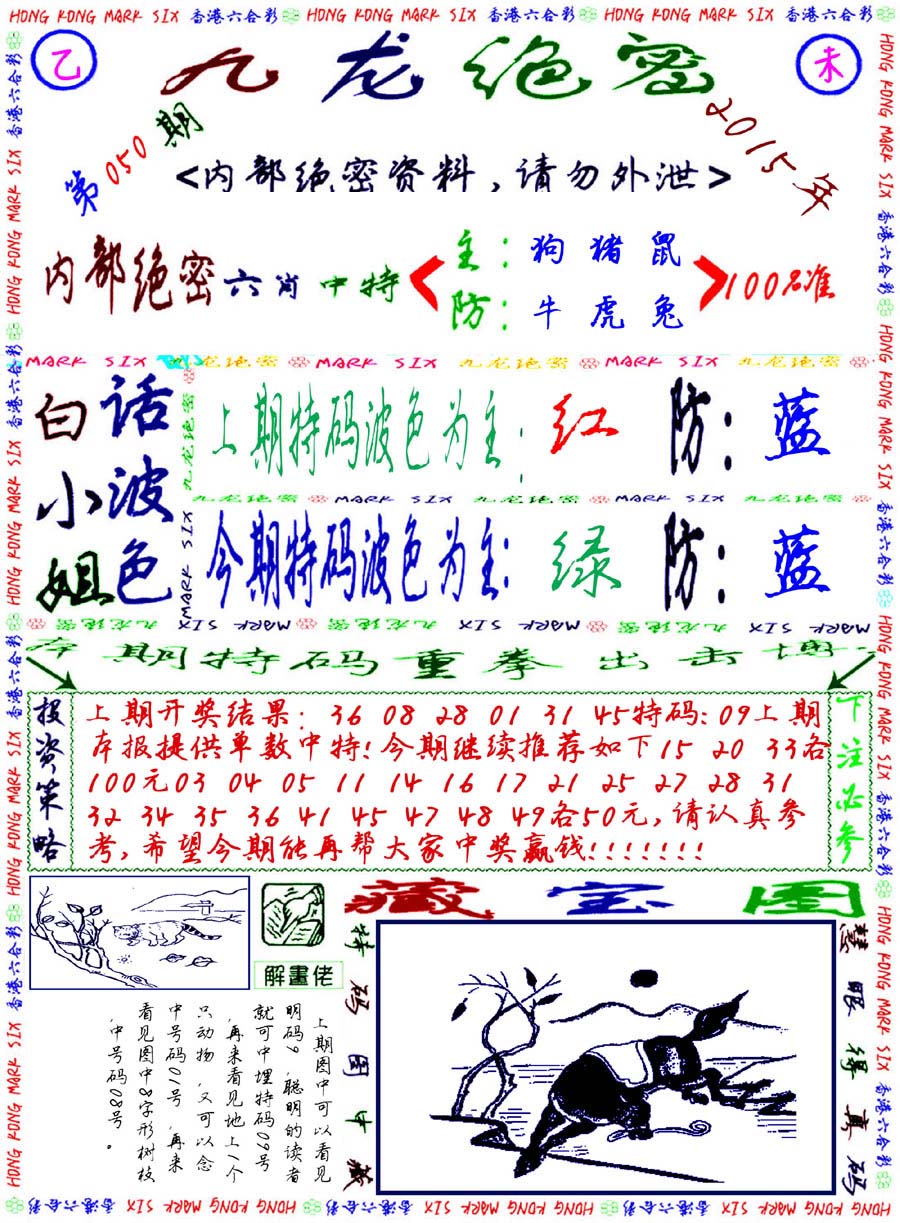 HONG KONG MARK SIX 香港六合彩 HONG KONG MARK SIX 香港六合彩 HONG KONG MARK SIX 香港六合彩
乙
九龙绝密
未
第050期
2015年
<内部绝密资料，请勿外泄>
内部绝密六肖中特
主：狗 猪 鼠
防：牛 虎 兔
100%准
MARK SIX 九龙绝密 MARK SIX 九龙绝密 MARK SIX 九龙绝密
白话
小波
姐色
上期特码波色为主：红 防：蓝
九龙绝密 MARK SIX 九龙绝密 MARK SIX 九龙绝密
今期特码波色为主：绿 防：蓝
MARK SIX 九龙绝密 MARK SIX 九龙绝密 MARK SIX 九龙绝密
本期特码重拳出击博
投资策略
上期开奖结果：36 08 28 01 31 45特码：09上期
本报提供单数中特！今期继续推荐如下15 20 33各
100元03 04 05 11 14 16 17 21 25 27 28 31
32 34 35 36 41 45 47 48 49各50元，请认真参
考，希望今期能再帮大家中奖赢钱！！！！！！！
下注必参
解畫佬
藏宝图
上期图中可以看见
明码9，聪明的读者
就可中埋特码09号
，再来看见地上1个
只动物，又可以念
中号码01号，再来
看见图中8字形树枝
，中号码08号。
特码图中藏
慧眼得真码
HONG KONG MARK SIX 香港六合彩 HONG KONG MARK SIX 香港六合彩 HONG KONG MARK SIX 香港六合彩